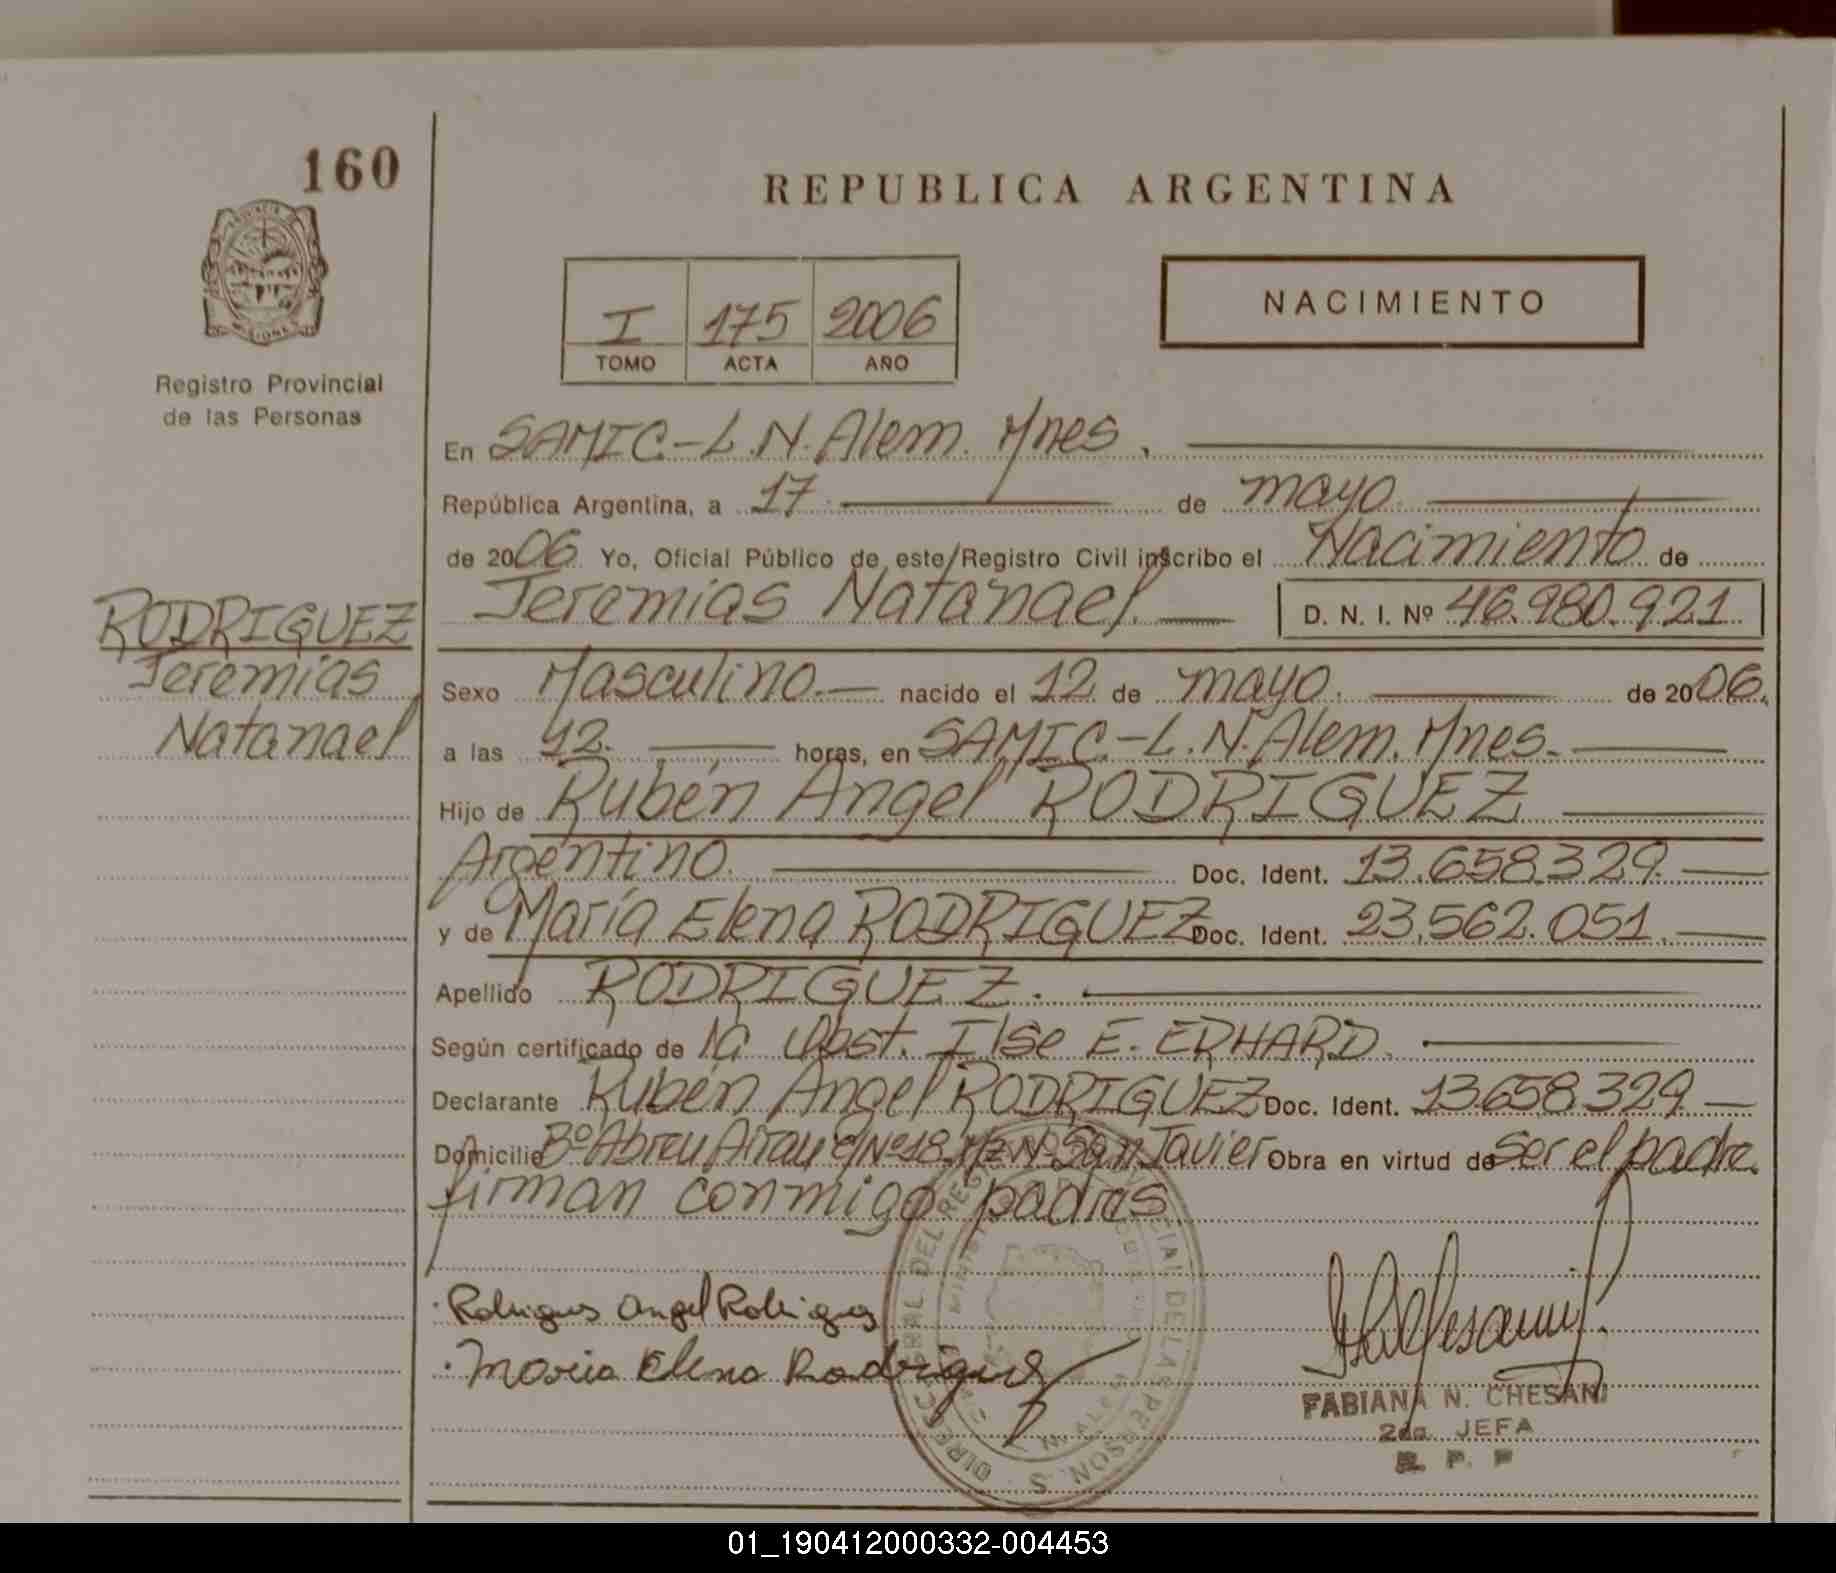 160
REPUBLICA ARGENTINA
PROVINCIA
MISIONES
Registro Provincial
de las Personas
I 175 2006
TOMO ACTA AÑO
NACIMIENTO
En SAMIC-L.N.Alem. Mnes.
República Argentina, a 17 de mayo.
de 2006. Yo, Oficial Público de este Registro Civil inscribo el Nacimiento de
Jeremías Natanael. D. N. I. Nº 46.980.921.
RODRIGUEZ
Jeremías
Natanael
Sexo Masculino. nacido el 12. de mayo. de 2006.
a las 12. horas, en SAMIC-L.N.Alem. Mnes.
Hijo de Rubén Angel RODRIGUEZ
Argentino. Doc. Ident. 13.658.329.
y de María Elena RODRIGUEZ Doc. Ident. 23.562.051.
Apellido RODRIGUEZ.
Según certificado de la Obst. Ilse E. ERHARD.
Declarante Rubén Angel RODRIGUEZ Doc. Ident. 13.658.329
Domicilio Bº Abreu Nº18 San Javier Obra en virtud de ser el padre.
firman conmigo padres.
Angel Rodrigues
Maria Elena Rodrigues
FABIANA N. CHESANI
2da. JEFA
R. P. P
01_190412000332-004453